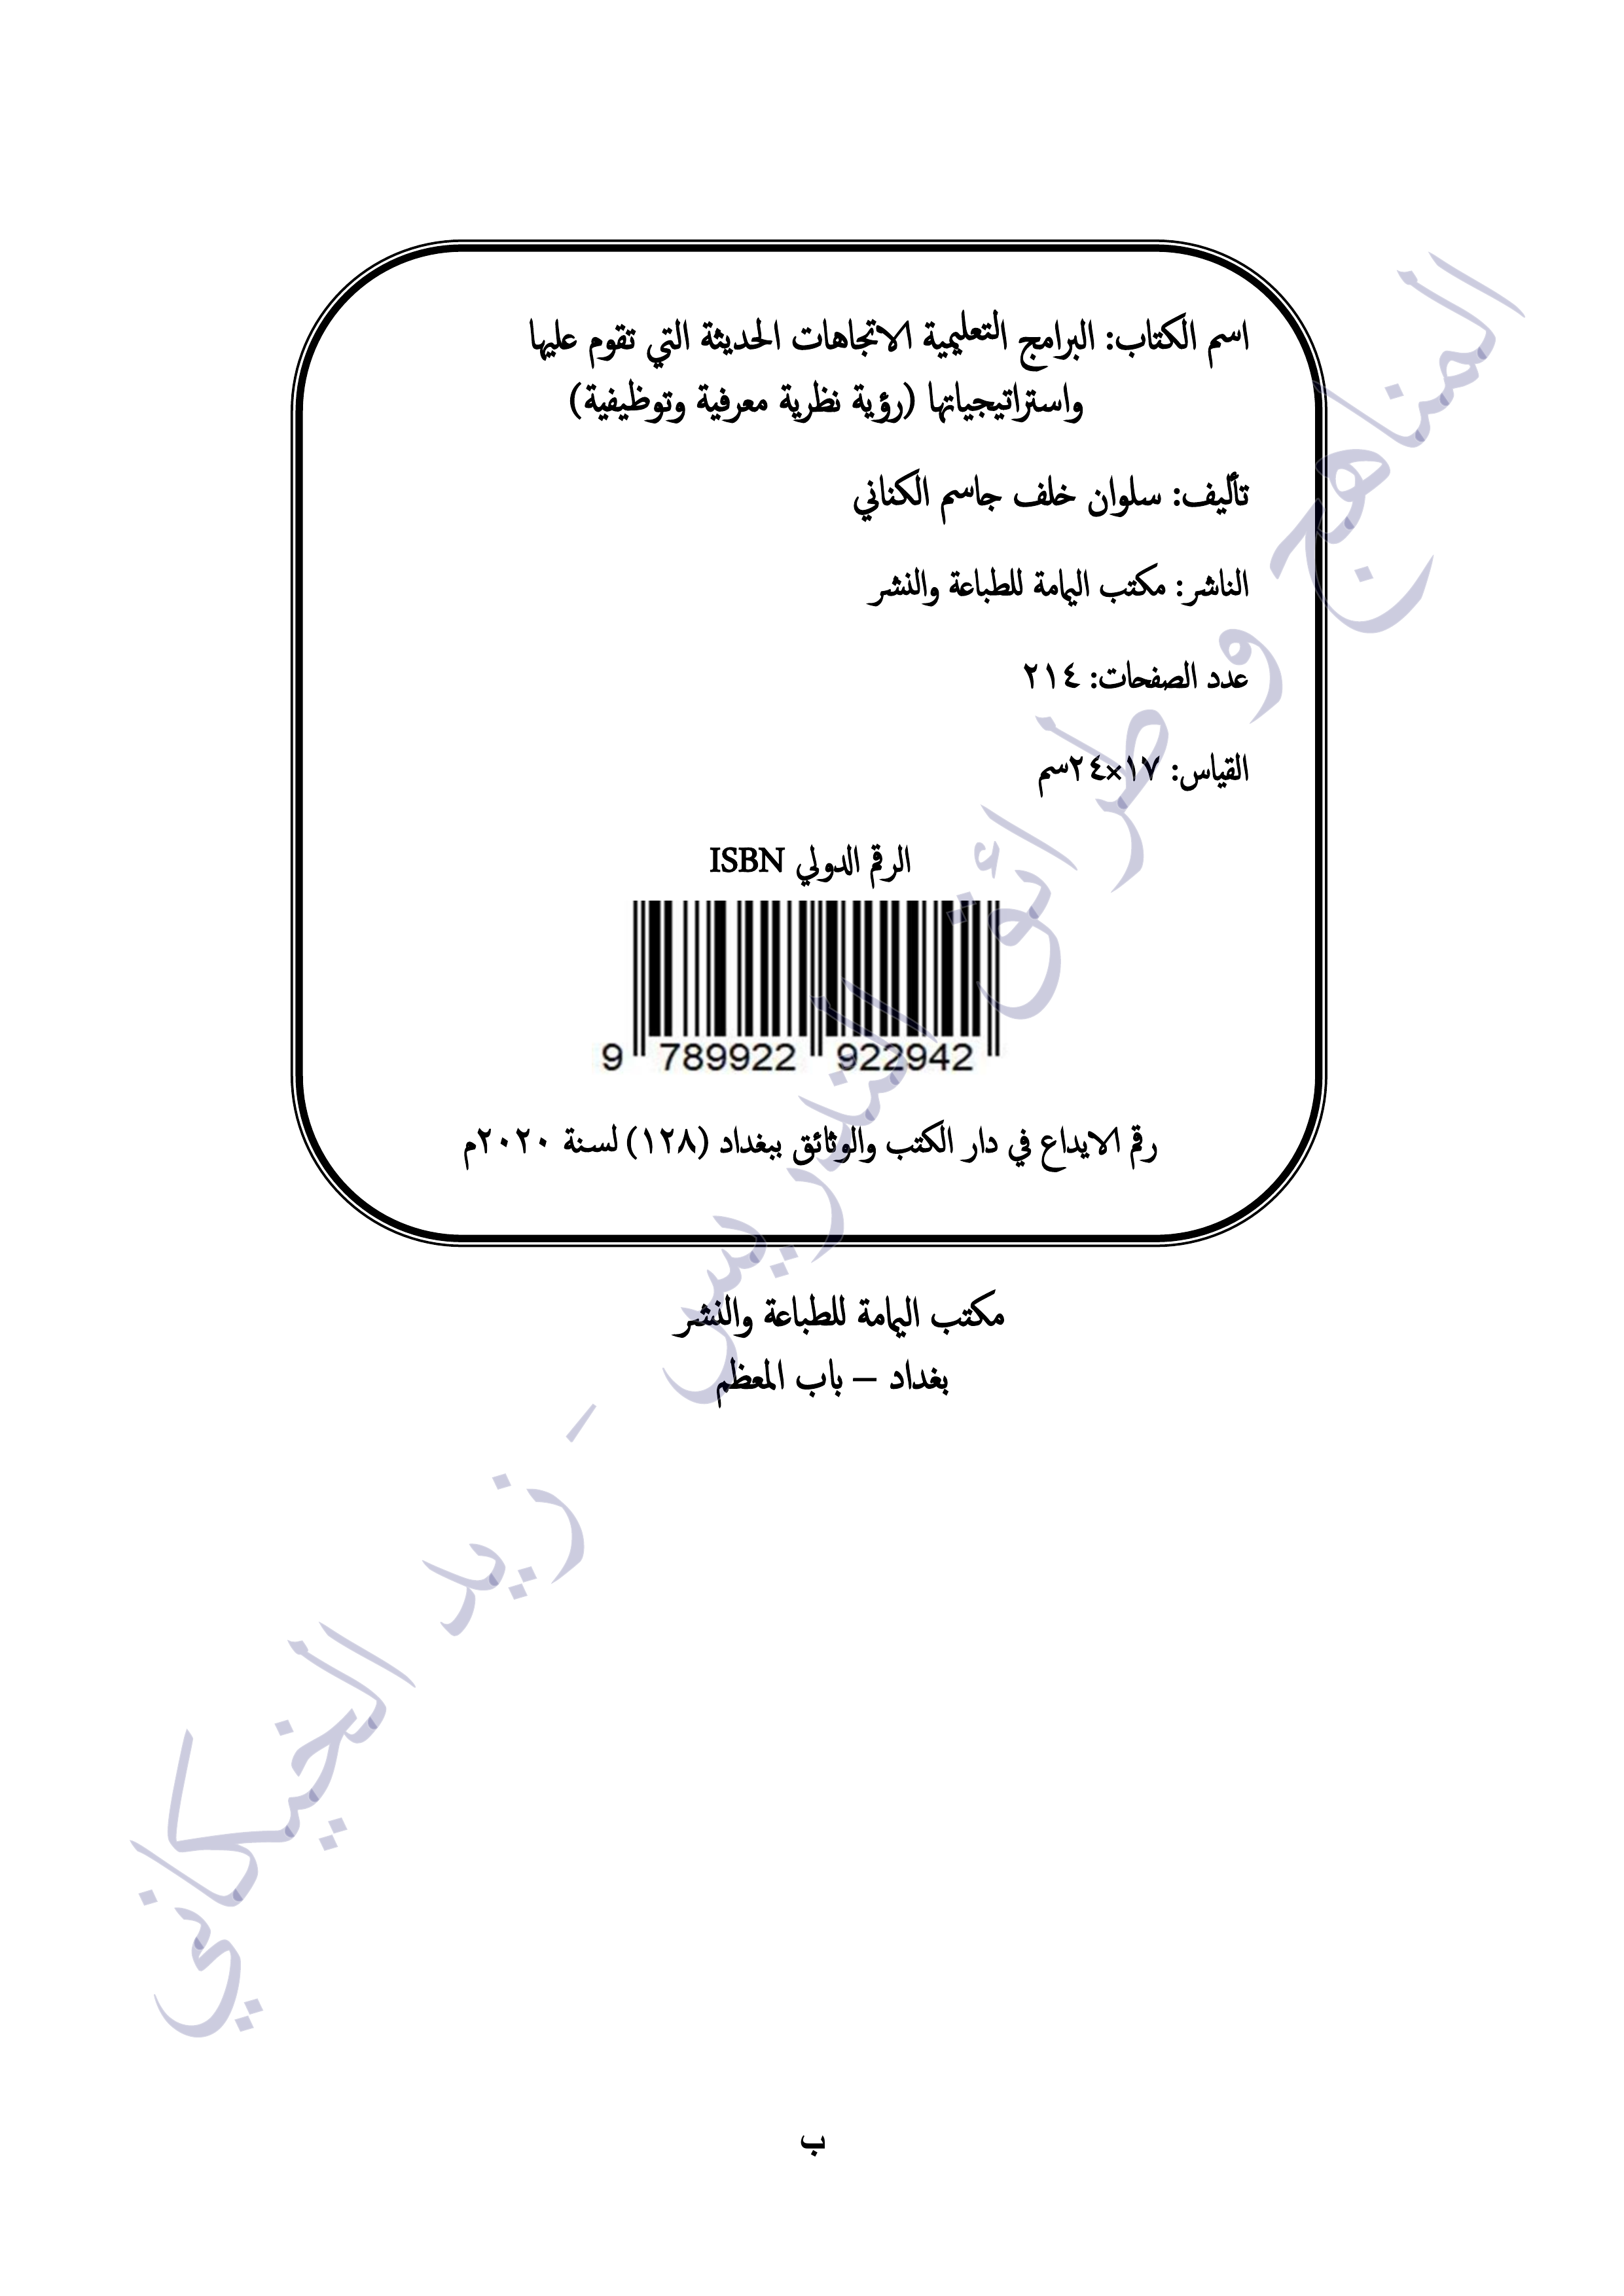 اسم الكتاب: البرامج التعليمية الاتجاهات الحديثة التي تقوم عليها
واستراتيجياتها (رؤية نظرية معرفية وتوظيفية)
تأليف: سلوان خلف جاسم الكناني
الناشر: مكتب اليمامة للطباعة والنشر
عدد الصفحات: ٢١٤
القياس: ١٧×٢٤سم
الرقم الدولي ISBN
9 789922 922942
رقم الايداع في دار الكتب والوثائق ببغداد (١٢٨) لسنة ٢٠٢٠م
مكتب اليمامة للطباعة والنشر
بغداد – باب المعظم
المناهج و طرائق التدريس - زيد الخيكاني
ب